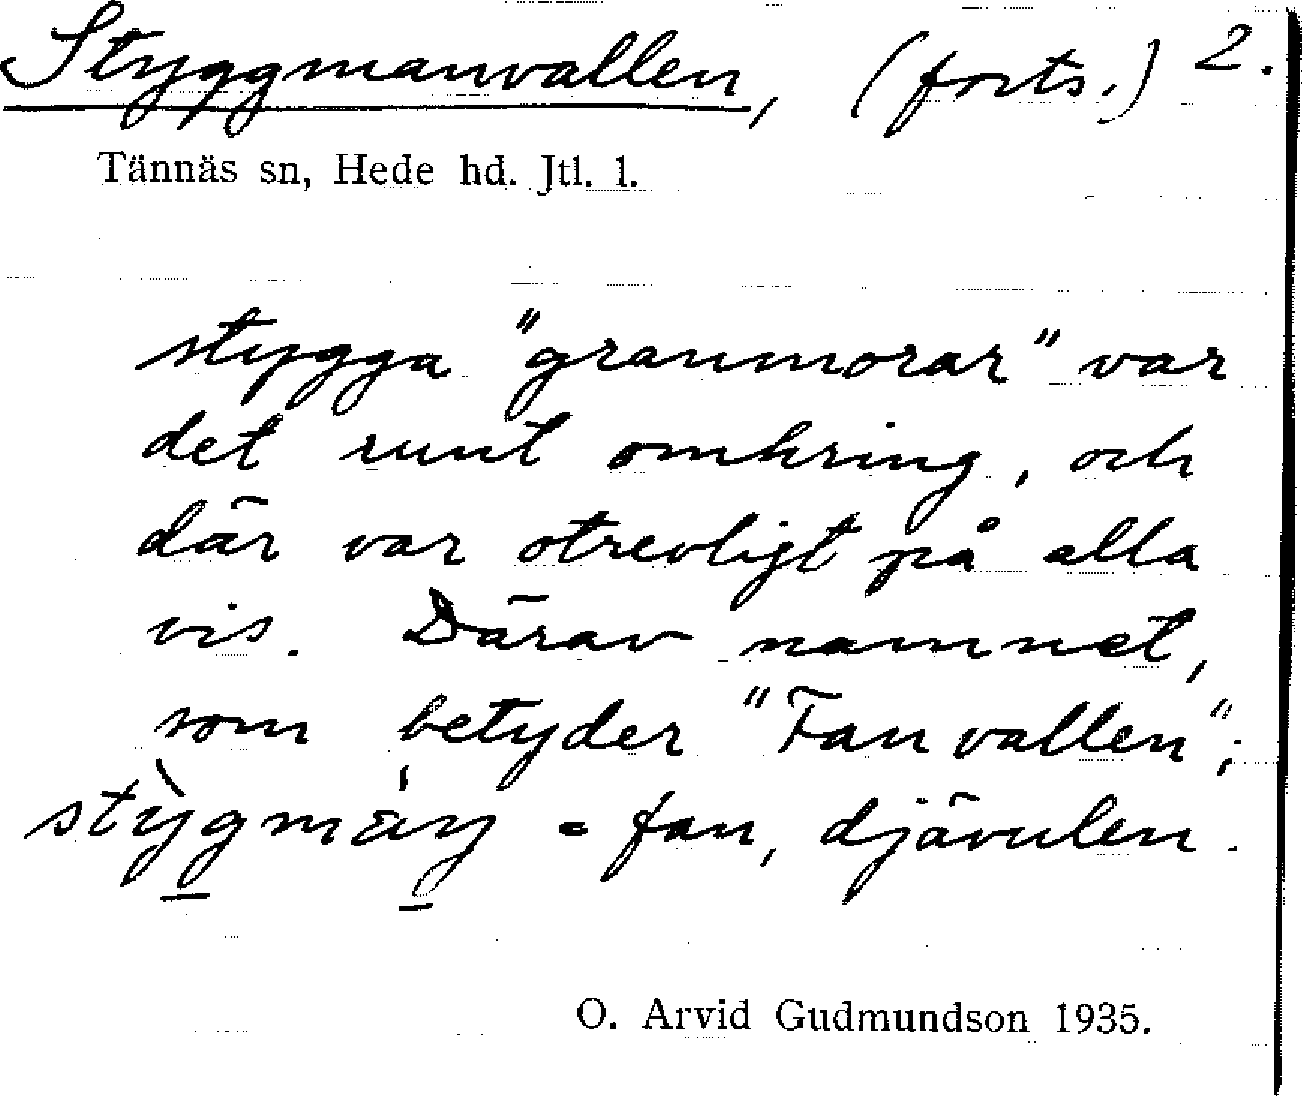 Styggmanvallen, (forts.) 2.
Tännäs sn, Hede hd. Jtl. l.
stygga "granmorar" var
det runt omkring, och
där var otrevligt på alla
vis. Därav namnet,
som betyder "Fan vallen";
= fan, djävulen.
O. Arvid Gudmundson 1935.